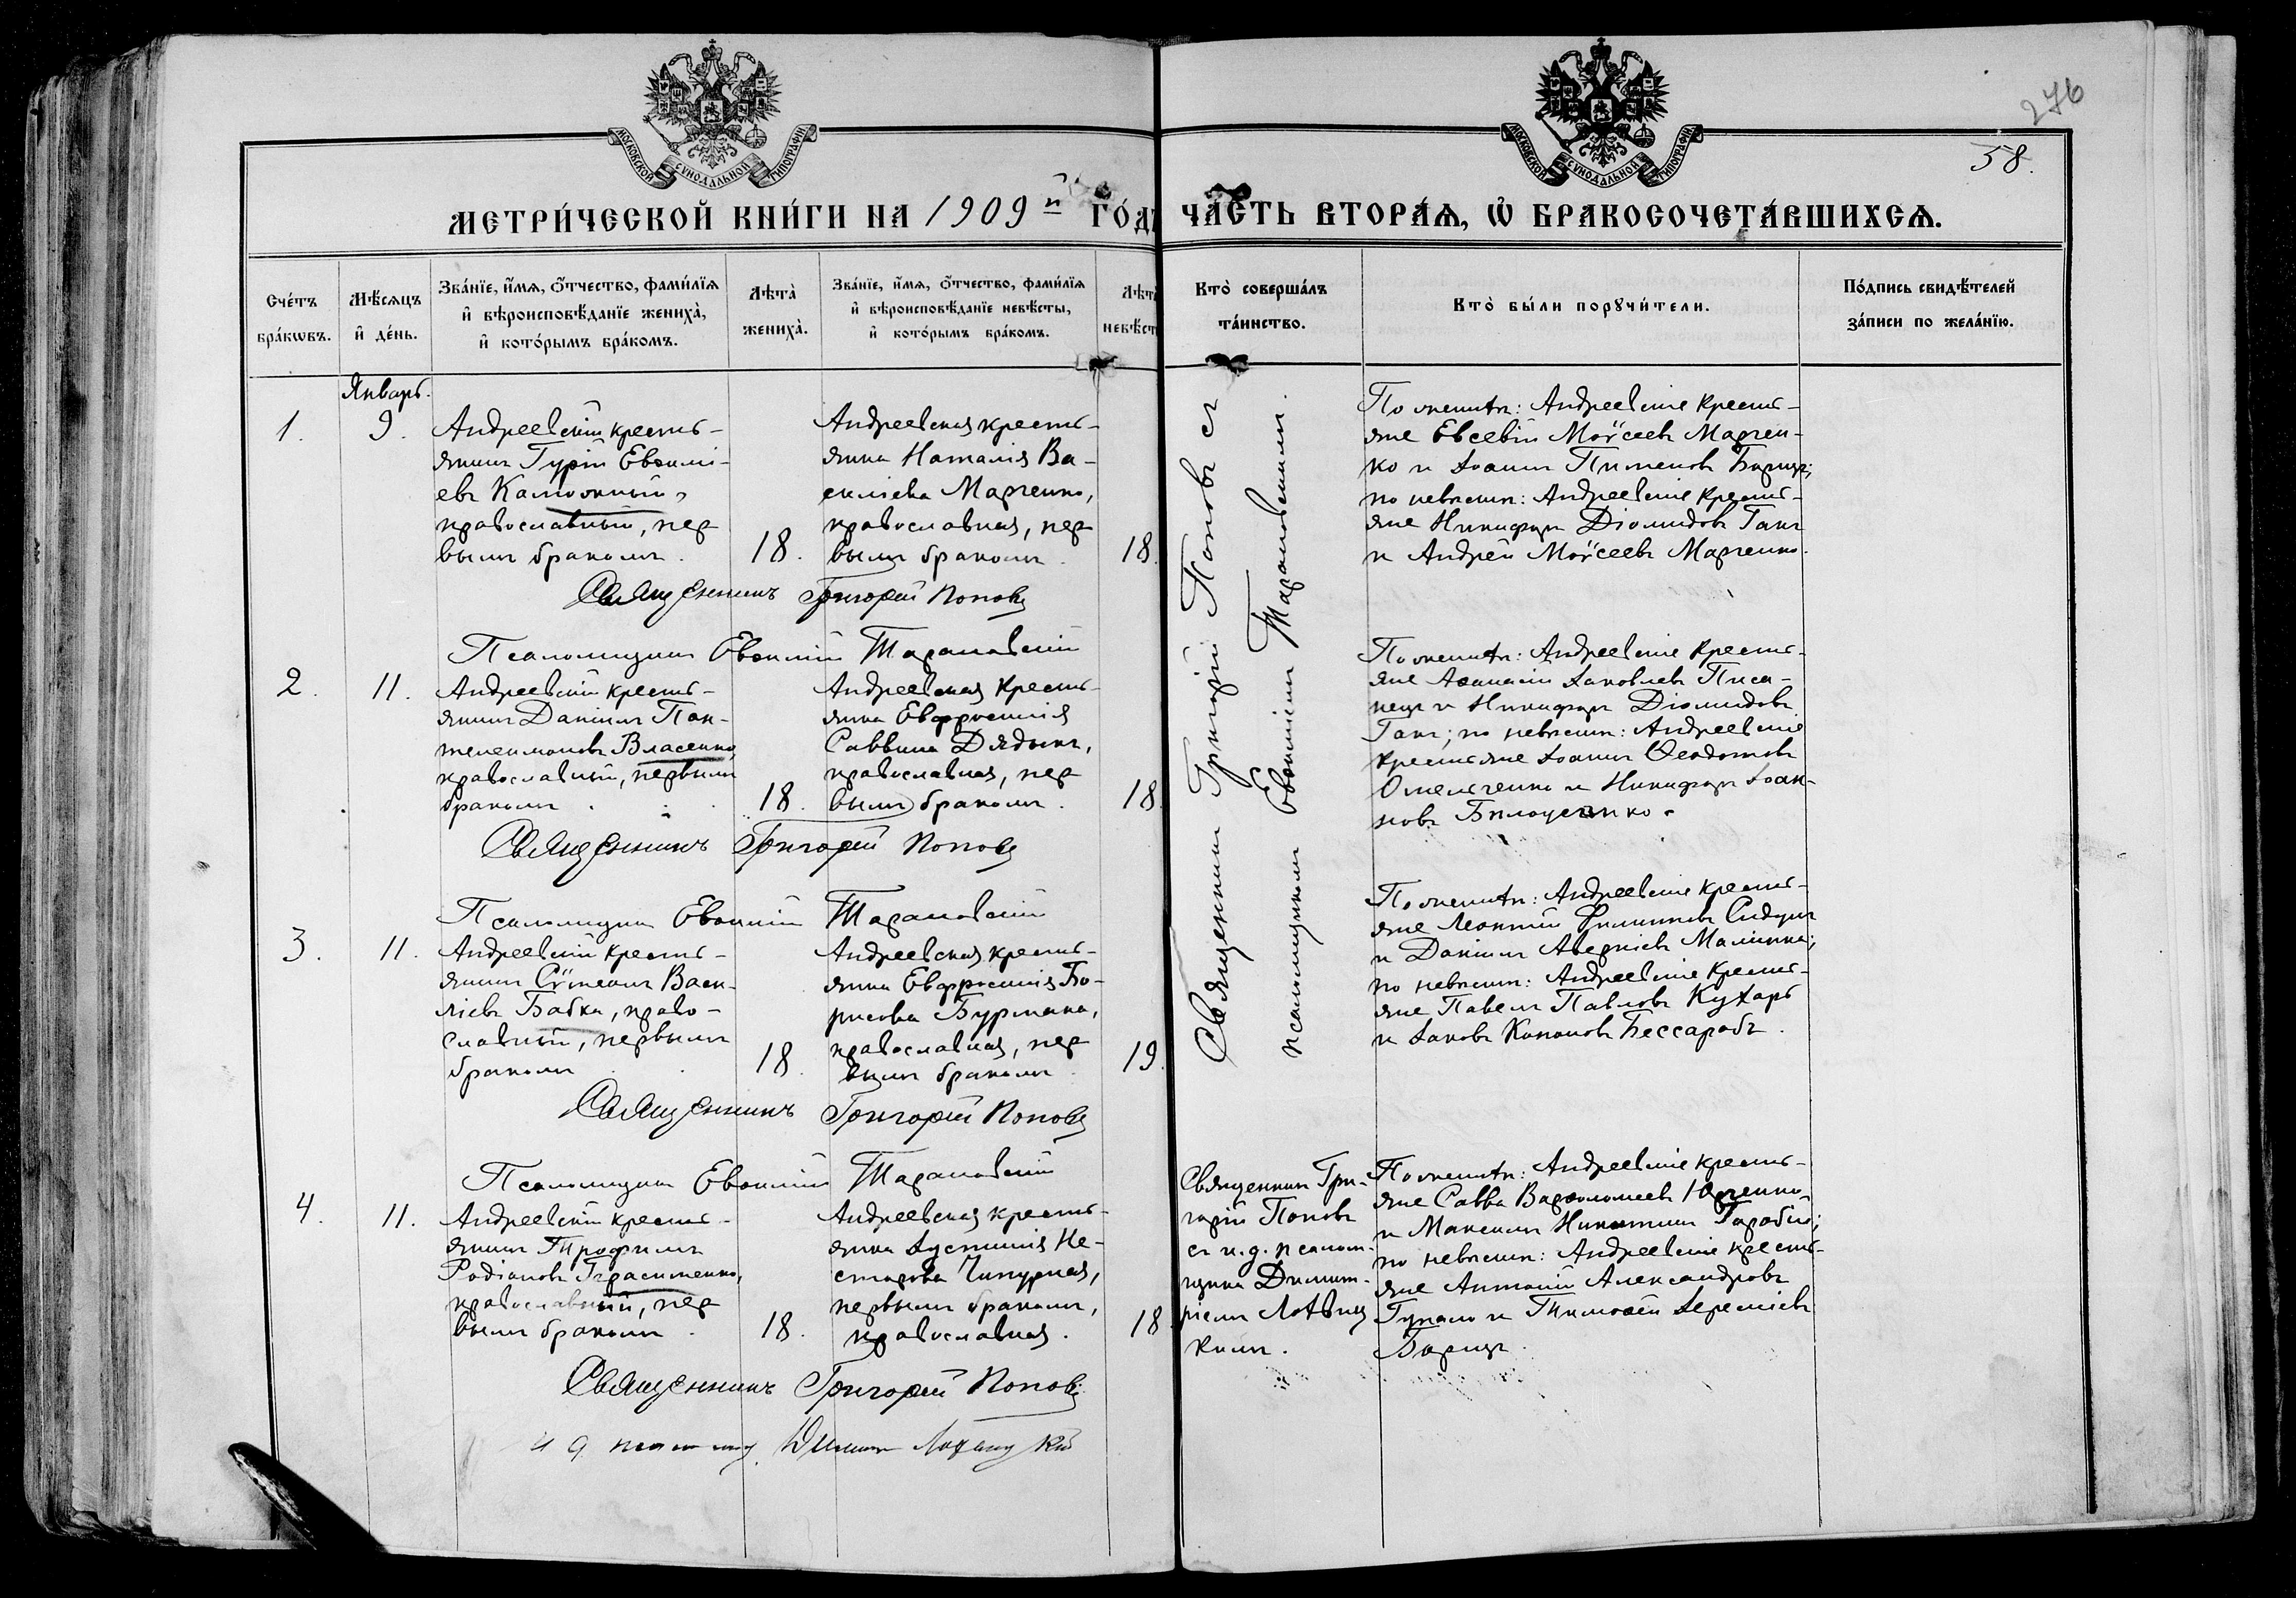 276
58.
МОСКОВСКОЙ СУНОДАЛЬНОЙ ТИПОГРАФІИ
МОСКОВСКОЙ СУНОДАЛЬНОЙ ТИПОГРАФІИ
МЕТРИ́ЧЕСКОЙ КНИ́ГИ НА 1909й ГО́ДЪ
ЧА́СТЬ ВТОРА́Я, Ѡ҆ БРАКОСОЧЕТА́ВШИХСЯ.
Сче́тъ бра́кѡвъ.
Мѣ́сяцъ и҆ де́нь.
Зва́нїе, и҆́мя, о҆́тчество, фами́лїя
и҆ вѣроисповѣ́данїе жениха̀,
и҆ кото́рымъ бра́комъ.
Лѣта̀ жениха̀.
Зва́нїе, и҆́мя, о҆́тчество, фами́лїя
и҆ вѣроисповѣ́данїе невѣ́сты,
и҆ кото́рымъ бра́комъ.
Лѣта̀ невѣ́ст
Кто̀ соверша́лъ
та́инство.
Кто̀ бы́ли порꙋчи́тели.
По́дпись свидѣ́телей
за́писи по жела́нїю.
Январь.
1.
9.
Андреевскій кресть-
янинъ Гурій Евѳимі-
евъ
православный, пер
вымъ бракомъ.
18.
Андреевская кресть-
янка Наталія Ва-
силіева Марченко,
православная, пер
вымъ бракомъ.
18.
Священникъ Григорій Поповъ съ
псаломщикомъ Евѳиміемъ Тарановскимъ.
По женихѣ: Андреевскіе кресть-
яне Евсевій Моѵсеевъ Марчен-
ко и Іоаннъ Пименовъ
по невѣстѣ: Андреевскіе кресть-
яне Никифоръ Діомидовъ Ганъ
и Андрей Моѵсеевъ Марченко.
Священникъ Григорій Поповъ
Псаломщикъ Евѳимій Тарановскій
2.
11.
Андреевскій кресть-
янинъ Даніилъ Пан-
телеимоновъ Власенко,
православный, первымъ
бракомъ.
18.
Андреевская кресть-
янка Евфросинія
Саввина Дядыкъ,
православная, пер
вымъ бракомъ.
18.
По женихѣ: Андреевскіе кресть-
яне Аѳанасій Іаковлевъ
и Никифоръ Діомидовъ
Ганъ; по невѣстѣ: Андреевскіе
крестьяне Іоаннъ Ѳеодотовъ
Омельченко и Никифоръ Іоан-
новъ
Священникъ Григорій Поповъ
Псаломщикъ Евѳимій Тарановскій
3.
11.
Андреевскій кресть-
янинъ Сѵмеонъ Васи-
ліевъ Бабка, право-
славный, первымъ
бракомъ
18.
Андреевская кресть-
янка Евфросинія Бо-
рисова Бурмака,
православная, пер
вымъ бракомъ.
19.
По женихѣ: Андреевскіе кресть-
яне Леонтій Филипповъ
и Даніилъ Аверкіевъ
по невѣстѣ: Андреевскіе кресть-
яне Павелъ Павловъ Кухарь
и Іаковъ Кононовъ Бессарабъ.
Священникъ Григорій Поповъ
Псаломщикъ Евѳимій Тарановскій
4.
11.
Андреевскій кресть-
янинъ Трофимъ
Родіоновъ Герасименко,
православный, пер
вымъ бракомъ.
18.
Андреевская кресть-
янка Іустинія Не-
сторова Чипурная,
первымъ бракомъ,
православная.
18
Священникъ Гри-
горій Поповъ
съ и. д. псалом-
щика Димит-
ріемъ Лотвиц
кимъ.
По женихѣ: Андреевскіе кресть-
яне Савва Варѳоломеевъ Юрченко
и Максимъ Никитинъ
по невѣстѣ: Андреевскіе кресть-
яне Антоній Александровъ
и Тимоѳей Іереміевъ
Священникъ Григорій Поповъ